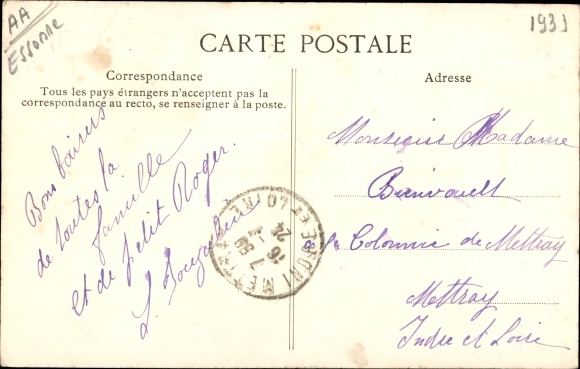 AA
Essonne
1939
CARTE POSTALE
Correspondance
Tous les pays étrangers n'acceptent pas la
correspondance au recto, se renseigner à la poste.
Bons baisers
de toutes la
famille
et de petit Roger.
Adresse
Monsieur Madame
Colonnie de Mettray
Mettray
Indre et Loire
METTRAY
INDRE ET LOIRE
16
7